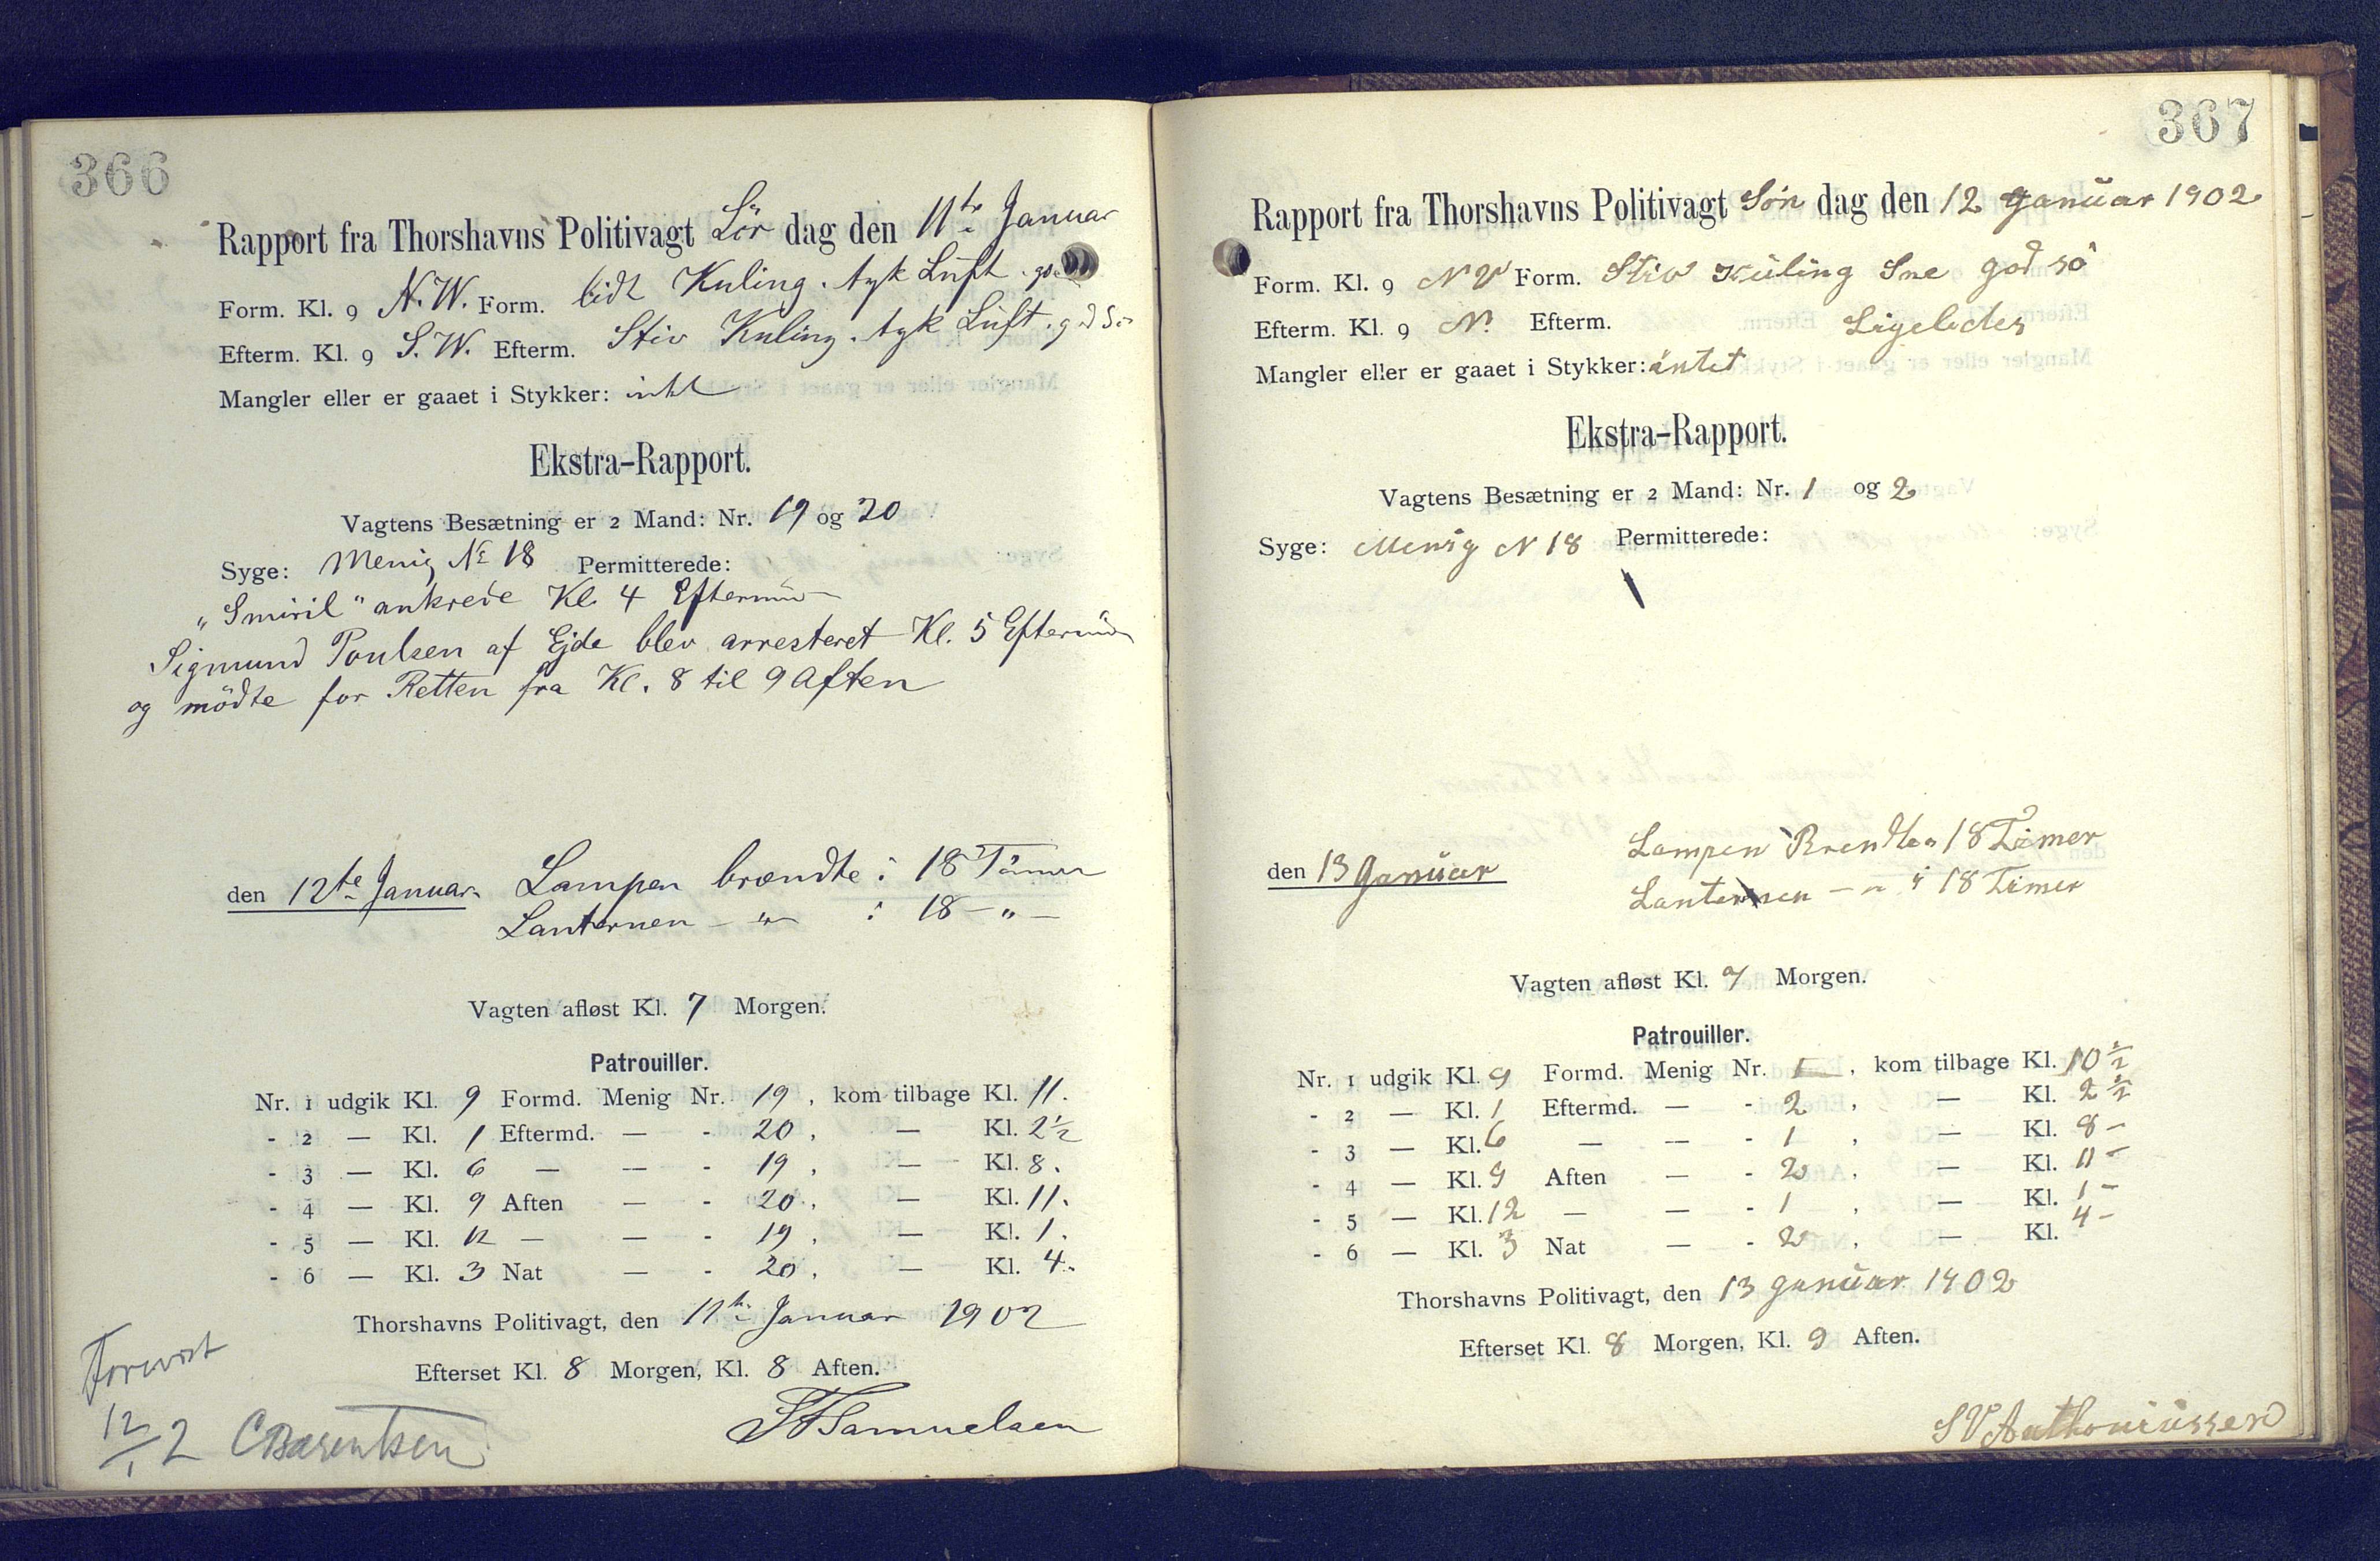 366
Rapport fra Thorshavns Politivagt Lör dag den 11te Januar
Form. Kl. 9 N.W. Form. lidt Kuling. tyk Luft.
Efterm. Kl. 9 S.W. Efterm. Stiv Kuling. tyk Luft. god Sö
Mangler eller er gaaet i Stykker: intet
Ekstra-Rapport.
Vagtens Besætning er 2 Mand: Nr. 19 og 20
Syge: Menig № 18 Permitterede:
„Smiril" ankrede Kl. 4 Eftermid
Sigmund Poulsen af Ejde blev arresteret Kl. 5 Eftermid
og mödte for Retten fra Kl. 8 til 9 Aften
den 12te Januar Lampen brændte: 18 Timer
Lanternen - " - : 18 - " -
Vagten afløst Kl. 7 Morgen.
Patrouiller.
Nr. 1 udgik Kl. 9 Formd. Menig Nr. 19, kom tilbage Kl. 11.
- 2 — Kl. 1 Eftermd. — - 20, — Kl. 2½
- 3 — Kl. 6 — — - 19, — Kl. 8.
- 4 — Kl. 9 Aften — - 20, — Kl. 11.
- 5 — Kl. 12 — — - 19, — Kl. 1.
- 6 — Kl. 3 Nat — - 20, — Kl. 4.
Thorshavns Politivagt, den 12te Januar 1902
Efterset Kl. 8 Morgen, Kl. 8 Aften.
Samuelsen
Forevist
12/1 2 C Bærentsen
367
Rapport fra Thorshavns Politivagt Sön dag den 12 Januar 1902
Form. Kl. 9 NV Form. Stiv Kuling Sne god sö
Efterm. Kl. 9 N. Efterm. Ligeledes
Mangler eller er gaaet i Stykker: intet
Ekstra-Rapport.
Vagtens Besætning er 2 Mand: Nr. 1 og 2
Syge: Menig N 18 Permitterede:
den 13 Januar Lampen Brendte 18 Timer
Lanternen - " - i 18 Timer
Vagten afløst Kl. 7 Morgen.
Patrouiller.
Nr. 1 udgik Kl. 9 Formd. Menig Nr. 1, kom tilbage Kl. 10½
- 2 — Kl. 1 Eftermd. — - 2, — Kl. 2½
- 3 — Kl. 6 — — - 1, — Kl. 8 -
- 4 — Kl. 9 Aften — - 2, — Kl. 11 -
- 5 — Kl. 12 — — - 1, — Kl. 1 -
- 6 — Kl. 3 Nat — - 2, — Kl. 4 -
Thorshavns Politivagt, den 13 Januar 1902
Efterset Kl. 8 Morgen, Kl. 9 Aften.
SV Anthoniussen